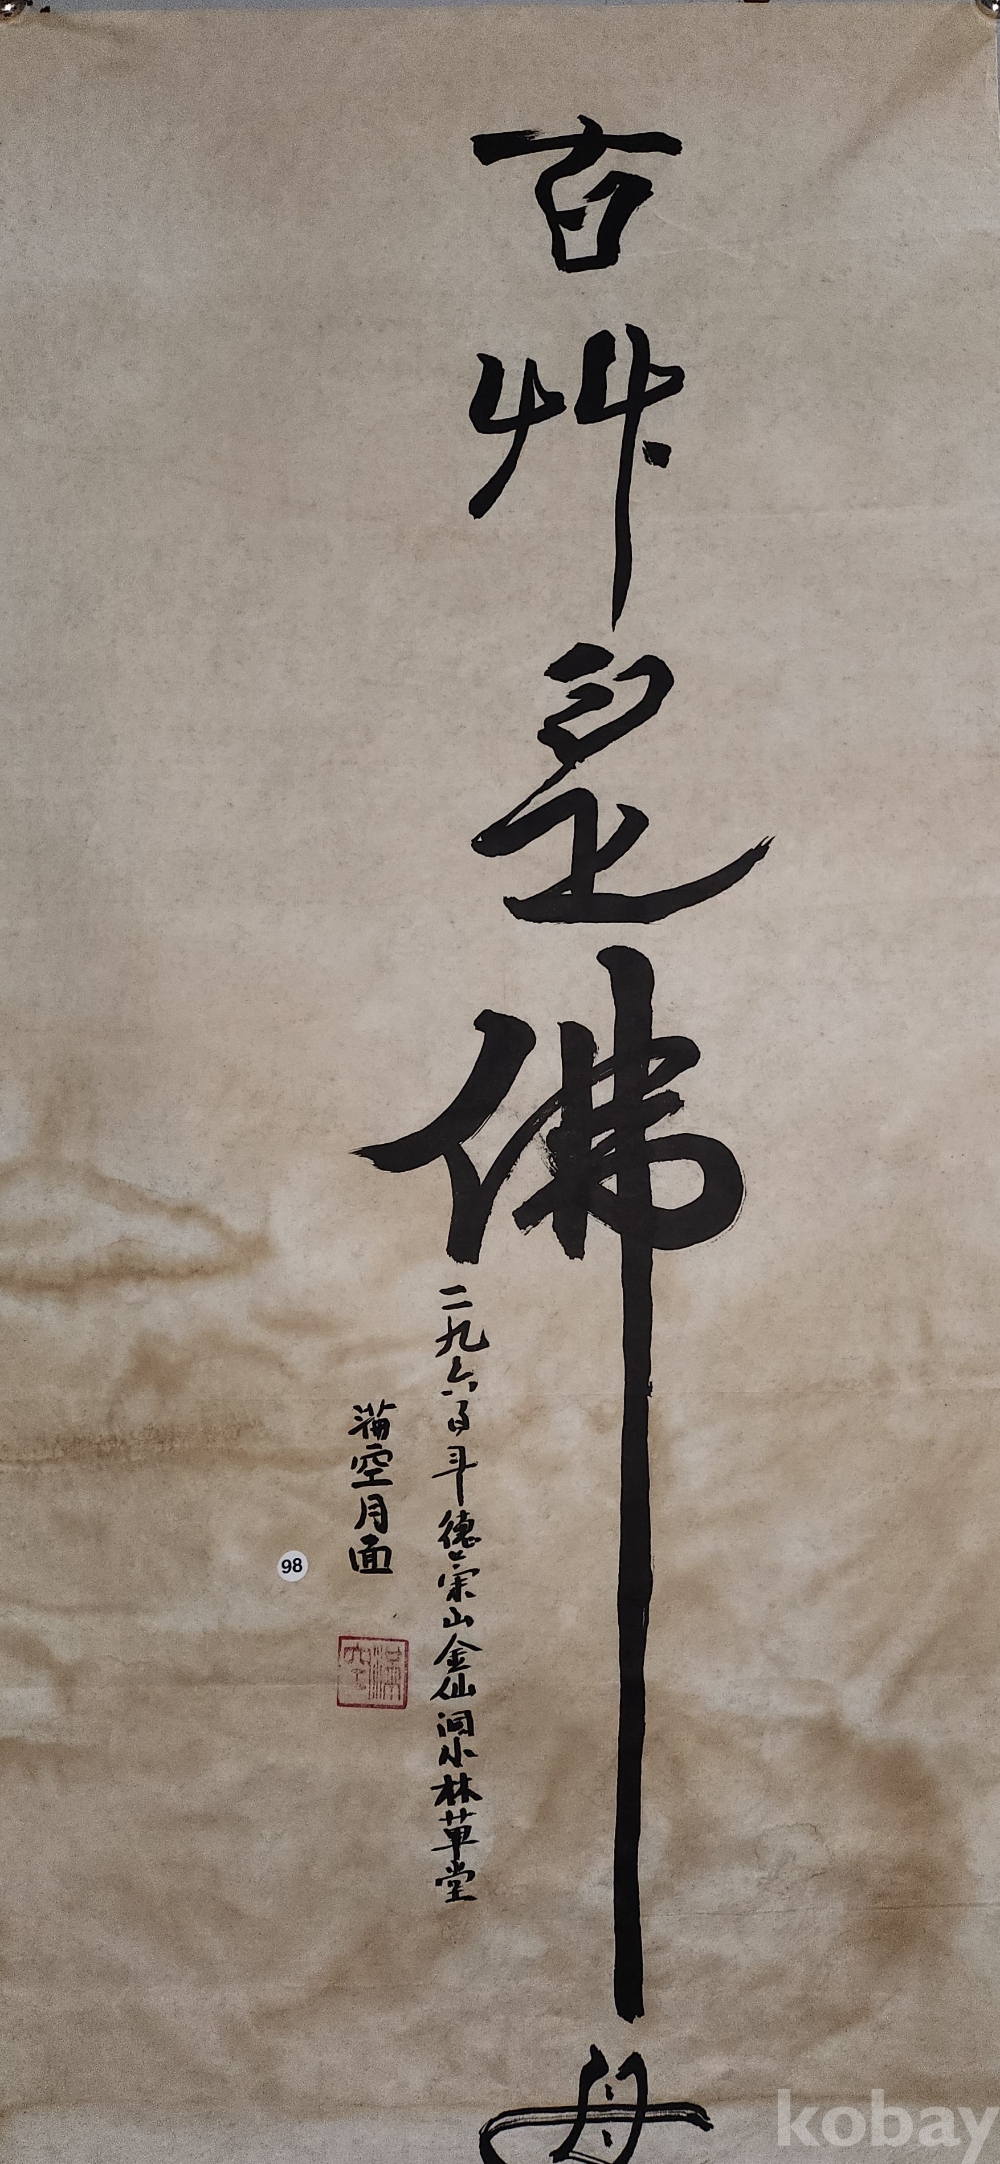 古艸是佛母
一九六百年 德崇山金仙洞小林草堂
滿空月面
98
滿空
kobay